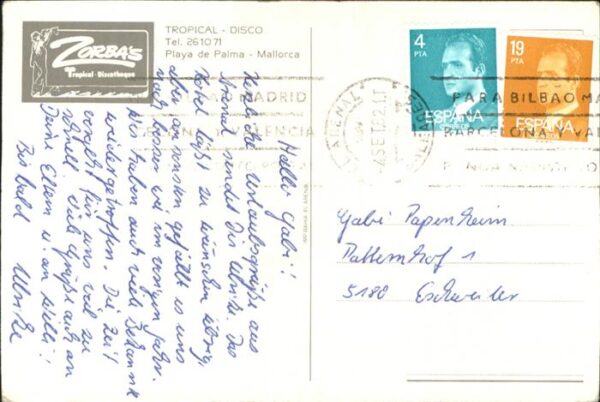 ZORBA'S
Tropical-Discotheque
TROPICAL - DISCO
Tel. 261071
Playa de Palma - Mallorca
4
PTA
ESPAÑA
CORREOS
19
PTA
ESPAÑA
EL ARENAL
4 SET 82
MADRID
VALENCIA
PARA BILBAO MA
BARCELONA VA
Hallo Gabi!
Urlaubsgrüße aus
sendet Dir Ulrike. Das
Hotel läßt zu wünschen übrig,
aber ansonsten gefällt es uns
noch besser wie im vorigen Jahr.
Wir haben auch viele Bekannte
wiedergetroffen. Die Zeit
vergeht für uns viel zu
schnell. Viele Grüße auch an
Deine Eltern u. an Willi!
Bis bald Ulrike
Gabi Papenheim
Patternhof 1
5180 Eschweiler